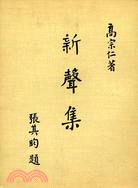 高宗仁著
新聲集
張真昀題